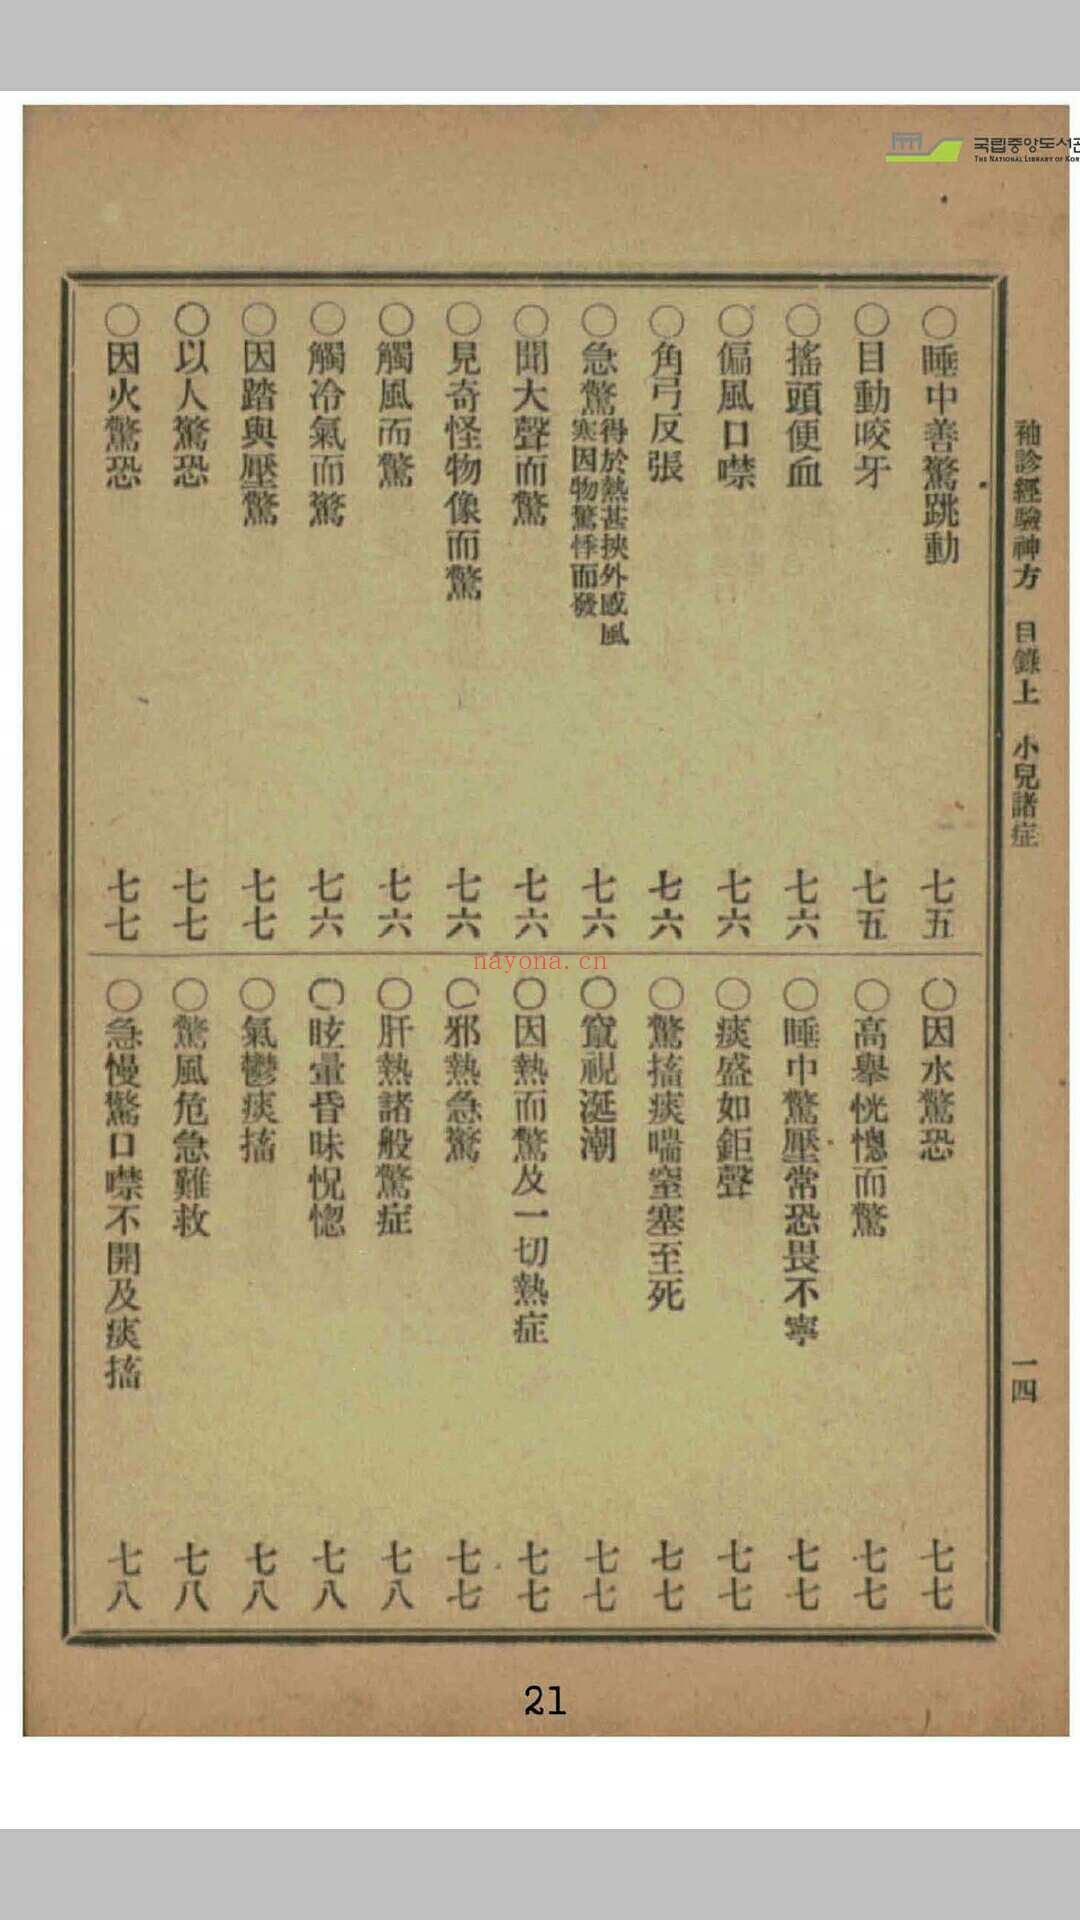 국립중앙도서관
THE NATIONAL LIBRARY OF KOR
袖診經驗神方 目錄上 小兒諸症 一四
〇睡中善驚跳動 七五
〇目動咬牙 七五
〇搖頭便血 七六
〇偏風口噤 七六
〇角弓反張 七六
〇急驚 得於熱甚挾外感風寒因物驚悸而發 七六
〇聞大聲而驚 七六
〇見奇怪物像而驚 七六
〇觸風而驚 七六
〇觸冷氣而驚 七六
〇因踏與壓驚 七七
〇以人驚恐 七七
〇因火驚恐 七七
〇因水驚恐 七七
〇高擧恍憁而驚 七七
〇睡中驚壓常恐畏不寧 七七
〇痰盛如鉅聲 七七
〇驚搐痰喘窒塞至死 七七
〇竄視涎潮 七七
〇因熱而驚及一切熱症 七七
〇邪熱急驚 七七
〇肝熱諸般驚症 七八
〇眩暈昏昧怳惚 七八
〇氣鬱痰搐 七八
〇驚風危急難救 七八
〇急慢驚口噤不開及痰搐 七八
nayona.cn
21